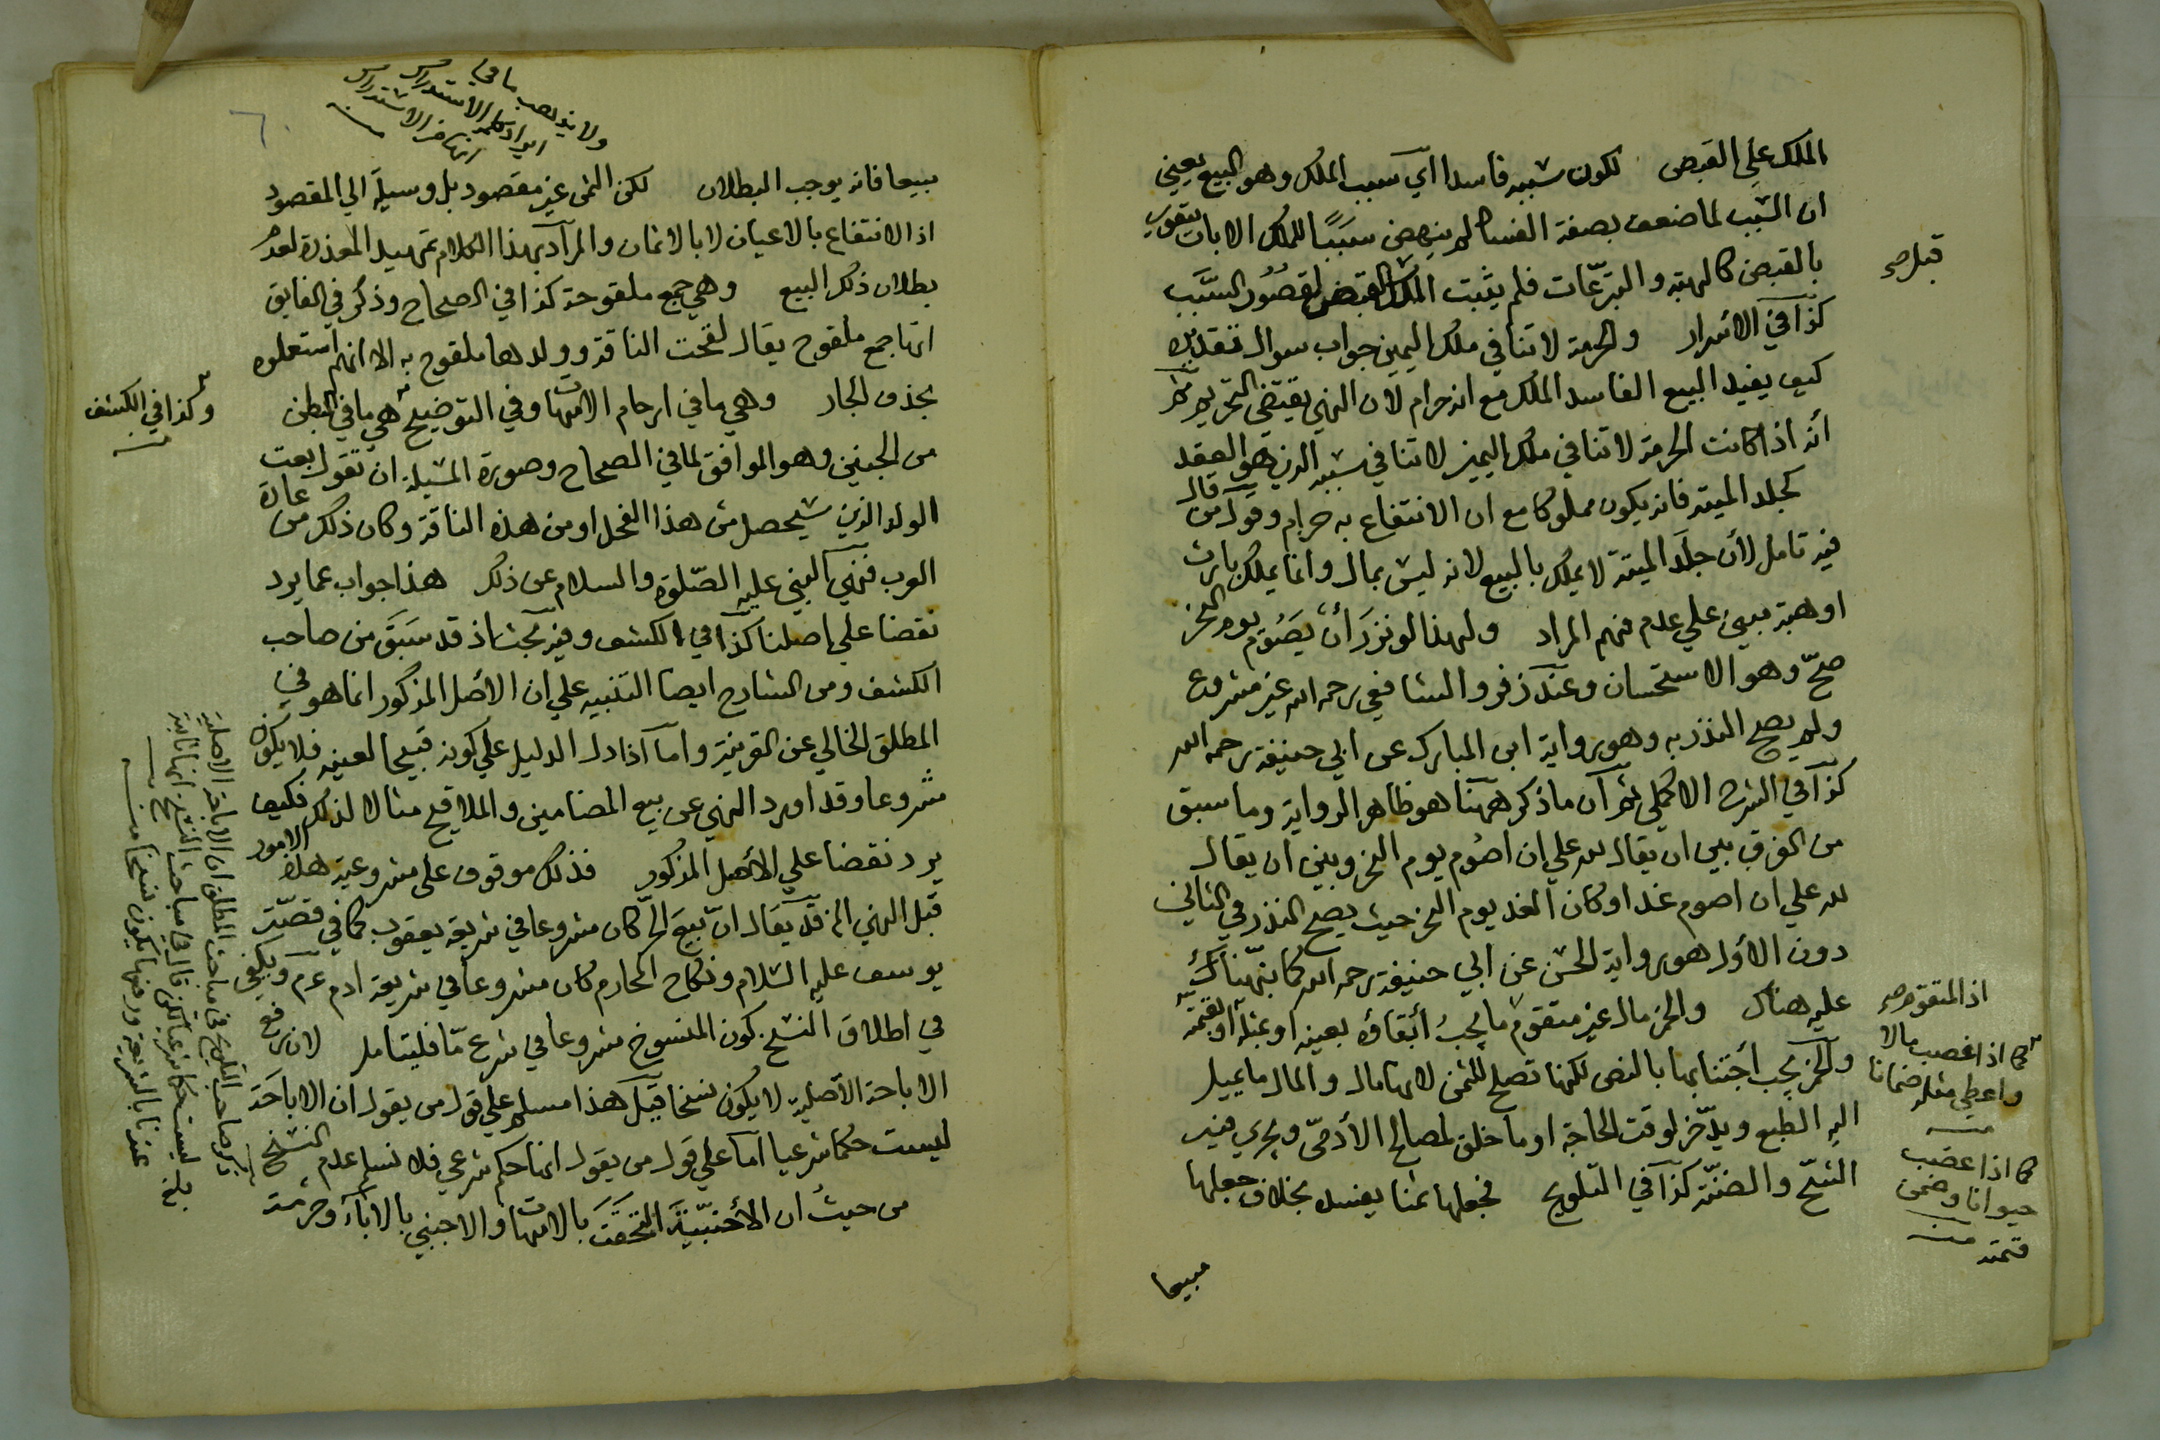 الملك على القبض لكون سببه فاسدا اي سبب الملك وهو البيع يعني
ان السبب لما ضعف بصفة الفساد لم ينهض سببًا للملك الا بان يتقوى
بالقبض كالهبة والتبرّعات فلم يثبت الملك القبض لقصُور السَّبَب
قبل صح
كذا في الاسرار والحرمة لا تنافي ملك اليمين جواب سوال تقديره
كيف يفيد البيع الفاسد الملك مع انه حرام لان النهي يقتضي التحريم
أنّه اذا كانت الحرمة لا تنافي ملك اليمين لا تنافي سببه الذي هو العقد
كجلد الميتة فانه يكون مملوكا مع ان الانتفاع به حرام وقول من قال
فيه تامل لأن جلد الميتة لا يملك بالبيع لانه ليس بمال وانما يملك بارث
او هبة يبنى على عدم فهم المراد ولهذا لو نزر أن يَصُوم يوم النحر
صحّ وهو الاستحسان وعند زفر والشافعي رحمه الله غير مشروع
ولم يصح النذر به وهو رواية ابن المبارك عن ابي حنيفة رحمه الله
كذا في الشرح الاكملي ثم ان ما ذكر ههنا هو ظاهر الرواية وما سبق
من الفرق بين ان يقال لله علي ان اصوم يوم النحر وبين ان يقال
لله علي ان اصوم غدا وكان الغد يوم النحر حيث يصح النذر في الثاني
دون الأول هو رواية الحسن عن ابي حنيفة رحمه الله كما نبّهناك
عليه هناك والخمر مال غير متقوم ما يجبُ أبقاؤه بعينه او بمثله او بقيمته
اذ المتقوم صح
والخمر يجب أجتنابها بالنص لكنها تصلح للثمن لانها مال والمال ما يميل
اليه الطبع ويدّخر لوقت الحاجة او ما خلق لمصالح الأدميّ ويجري فيه
الشحّ والضنّة كذا في التلويح فجعلها ثمنا يفسد بخلاف جعلها
كما اذا غصب مالا
واعطى مثله ضمانا
منه
كما اذا غصب
حيوانا وضمن
قيمته منه
مبيعا
ولا يذهب ما في
ايراد كلمة الاستدراك
منه
مبيعا فانه يوجب البطلان لكن الثمن غير مقصود بل وسيلة الي المقصود
اذ الانتفاع بالاعيان لا بالاثمان والمراد بهذا الكلام تمهيد المعذرة لعدم
بطلان ذلك البيع وهي جمع ملقوحة كذا في الصحاح وذكر في الفايق
انها جمع ملقوح يقال لقحت الناقة وولدها ملقوح به الا انهم استعملوه
بحذف الجار وهي ما في ارحام الامهات وفي التوضيح هي ما في البطن
وكذا في الكشف
منه
من الجنين وهو الموافق لما في الصحاح وصورة المسئلة ان تقول بعت
الولد الذي سيحصل من هذا الفحل او من هذه الناقة وكان ذلك من عادة
العرب فنهي النبي عليه الصّلوة والسلام عن ذلك هذا جواب عما يرد
نقضا علي اصلنا كذا في الكشف وفيه بحث اذ قد سَبَق من صاحب
الكشف ومن الشارح ايضا التنبيه علي ان الأصل المذكور انما هو في
المطلق الخالي عن القرينة واما اذا دل الدليل علي كونه قبيحا لعينه فلا يكون
مشروعا وقد اورد النهي عن بيع المضامين والملاقيح مثالا لذلك فكيف
يرد نقضا علي الأصل المذكور فذلك موقوف على مشروعية هذه الامور
قبل النهي الخ قد يقال ان بيع الحرّ كان مشروعا في شريعة يعقوب كما في قصّة
يوسف عليه السلام ونكاح المحارم كان مشروعا في شريعة ادم عم ويكفي
في اطلاق النسخ كون المنسوخ مشروعا في شرع مّا فليتامل لان رفع
الاباحة الأصلية لا يكون نسخا قيل هذا مسلم علي قول من يقول ان الاباحَة
ليست حكما شرعيا اما علي قول من يقول انها حكم شرعي فلا نسلم عدم النسخ
من حيث ان الأجنبيّة التحقت بالامهات والاجنبي بالاباء وحرمة
ذكر صاحب التلويح في مباحث المطلق ان الاباحة الاصلية
ليست حكما شرعيا لكن قال في مباحث النسخ انها ثابتة
عندنا بالشريعة ورفعها يكون نسخا منه